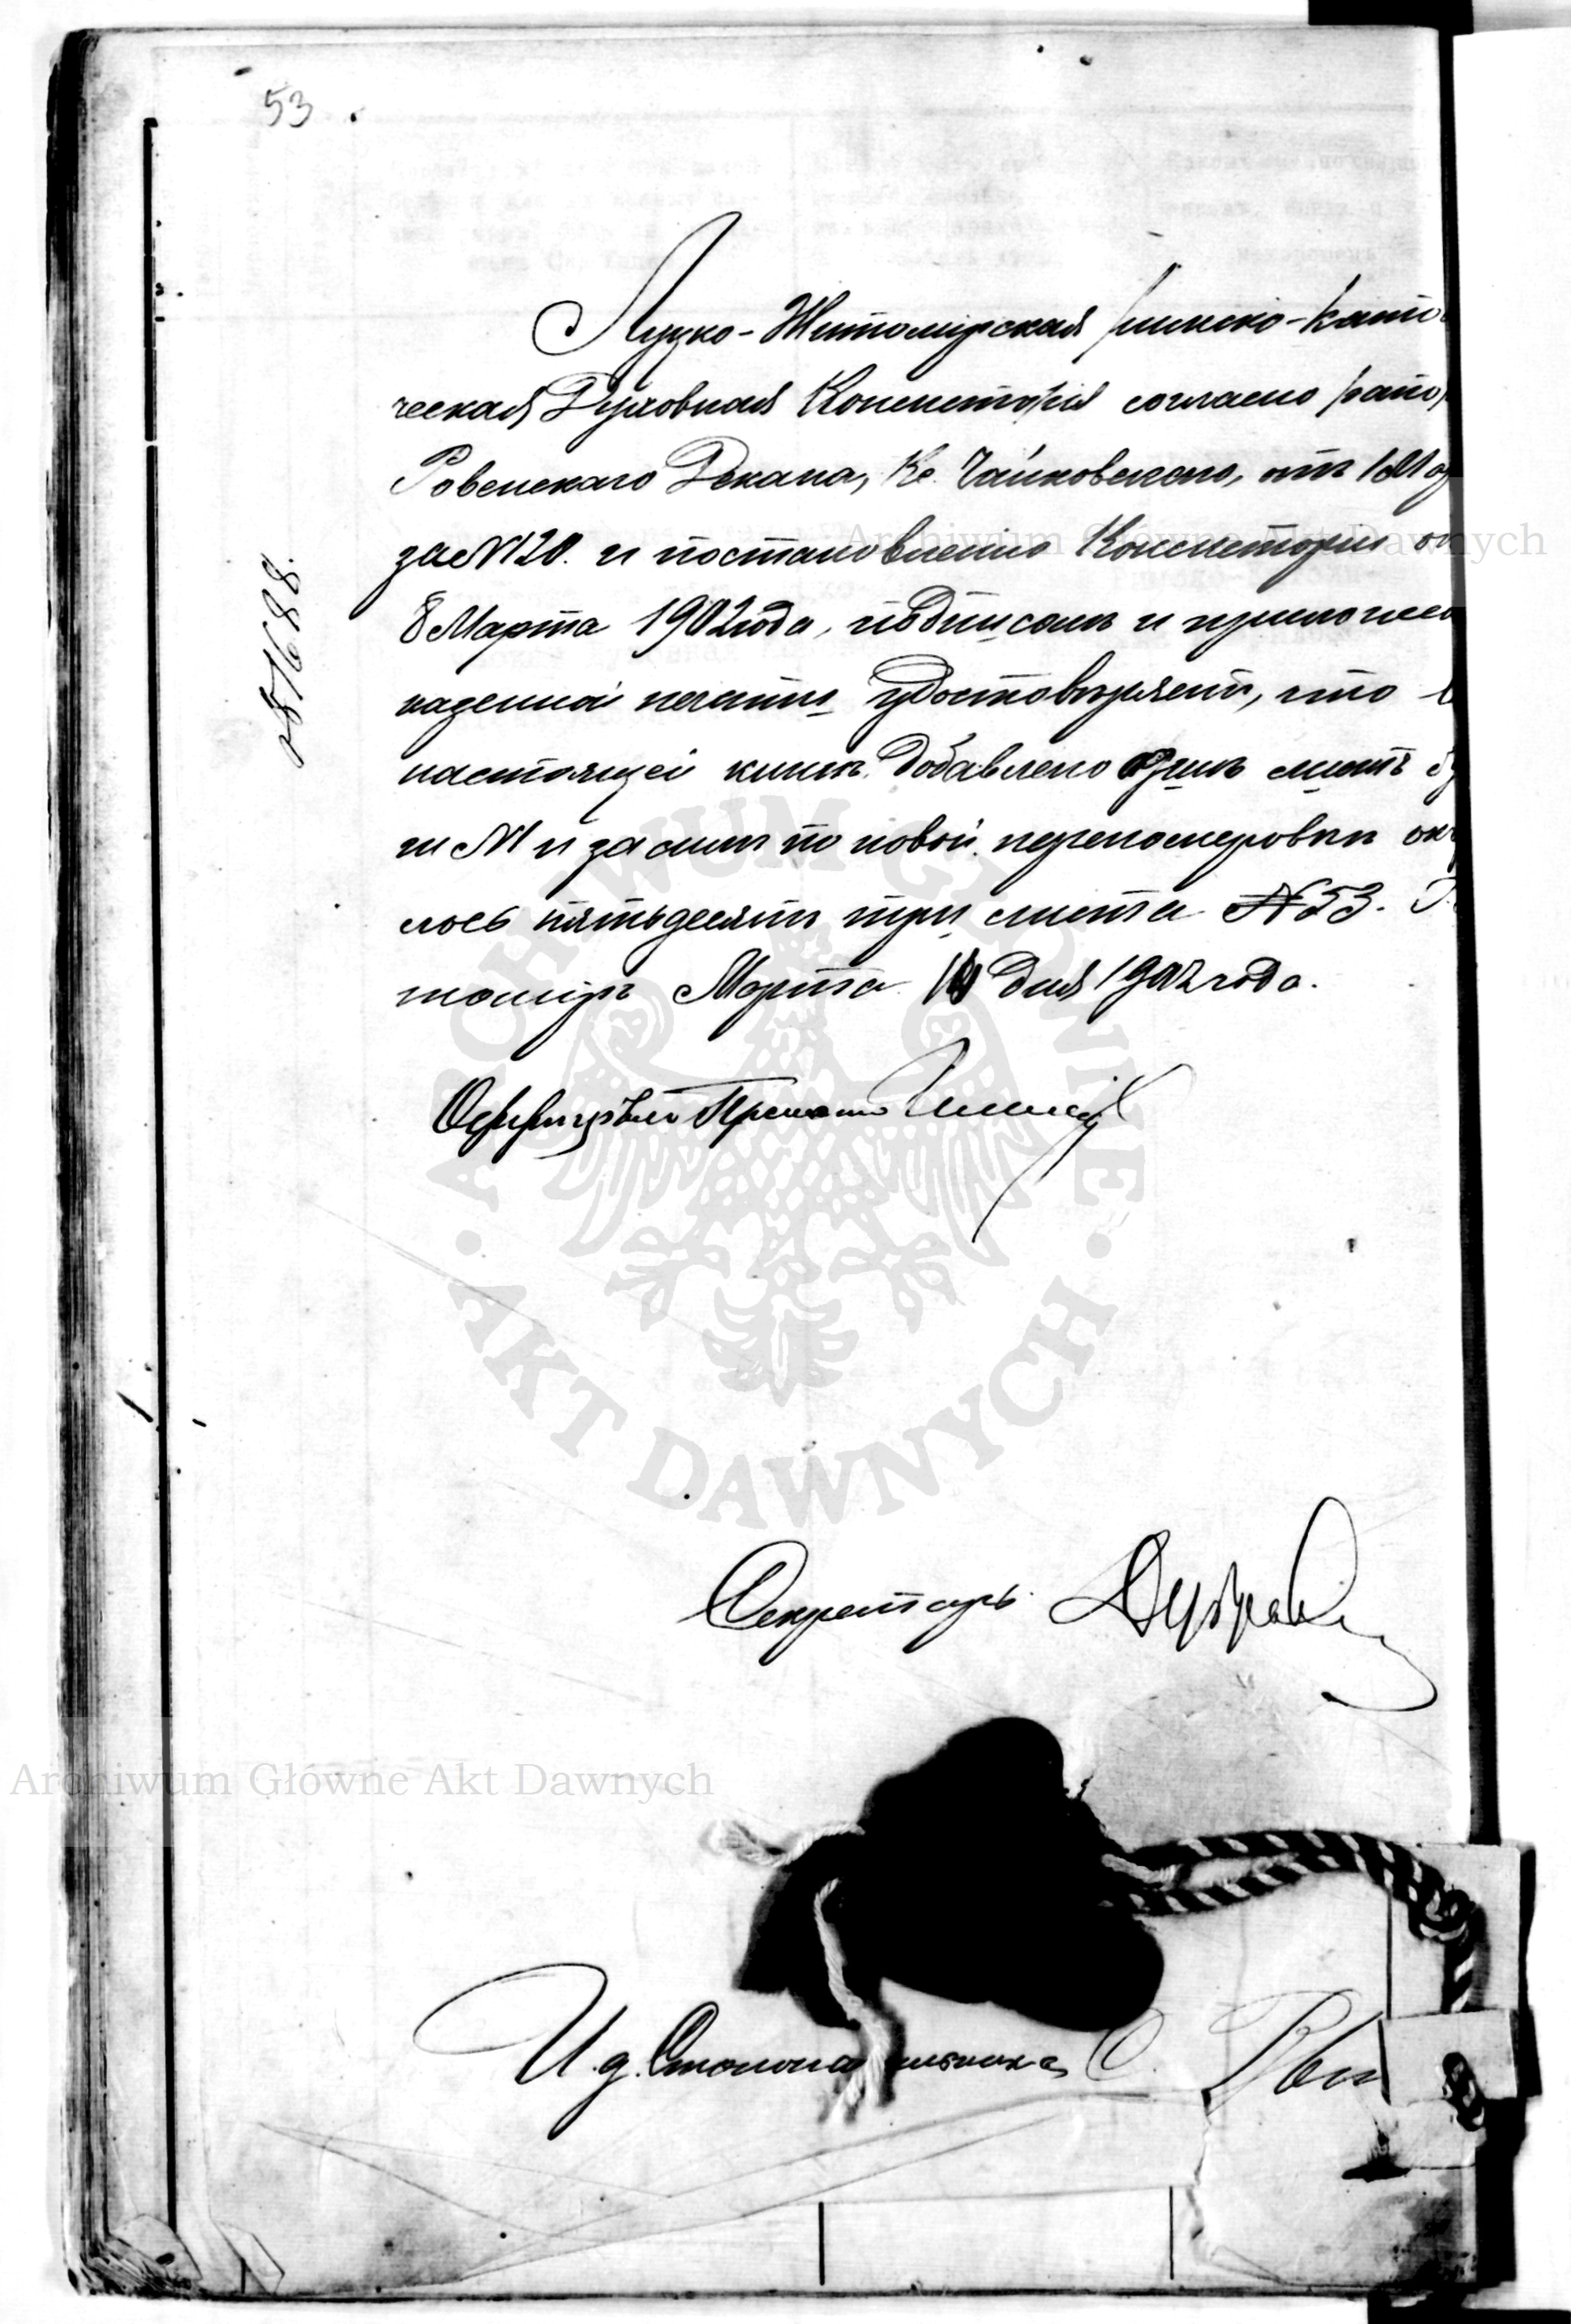 53
Луцко-Житомирская римско-като
ческая Духовная Консисторія согласно рапор
Ровенскаго Декана, Кс. Чайковскаго, отъ 1 Мар
за №120. и постановленію Консисторіи от
8 Марта 1902 года, подписомъ и приложеніе
казенной печати удостовѣряетъ, что въ
настоящей книгѣ добавлено одинъ листъ бу
ги №1 и за симъ по новой перенумеровкѣ ока
лось пятьдесятъ три листа №53. Ж
томіръ Марта 14 дня 1902 года.
№1688.
Оффиціалъ Прелатъ
Секретарь
И. д. Столоначальника С.
Archiwum Główne Akt Dawnych
Archiwum Główne Akt Dawnych
ARCHIWUM GŁÓWNE AKT DAWNYCH